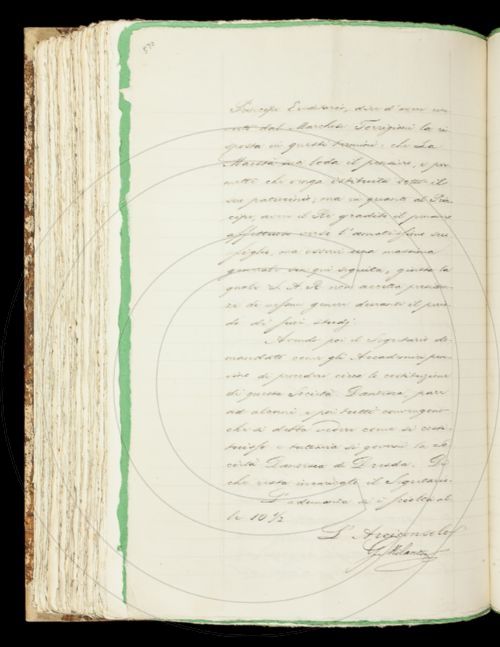 Principe Ereditario, dice d'aver avu
to dal Marchese Torrigiani la ri
sposta in questi termini: che La
Maestà sua loda il pensiero, e per
mette che venga istituita sotto il
suo patrocinio; ma in quanto al Prin
cipe, aver il Re gradito il pensiero
affettuoso verso l'amatissimo suo
figlio, ma esservi una massima
generale sin qui seguita, giusta la
quale S. A. R. non accetta presiden
ze di nessun genere durante il perio
do di suoi studj.
Avendo poi il Segretario do
mandato come gli Accademici pen
sino di procedere circa la costituzione
di questa Società Dantesca, pare
ad alcuni, e poi tutti convengono
che si debba vedere come si costi
tuisse e tuttavia si governi la So
cietà Dantesca di Dresda. Di
che resta incaricato il Segretario.
L'adunanza si è sciolta al
le 10 1/2
L'Arciconsolo